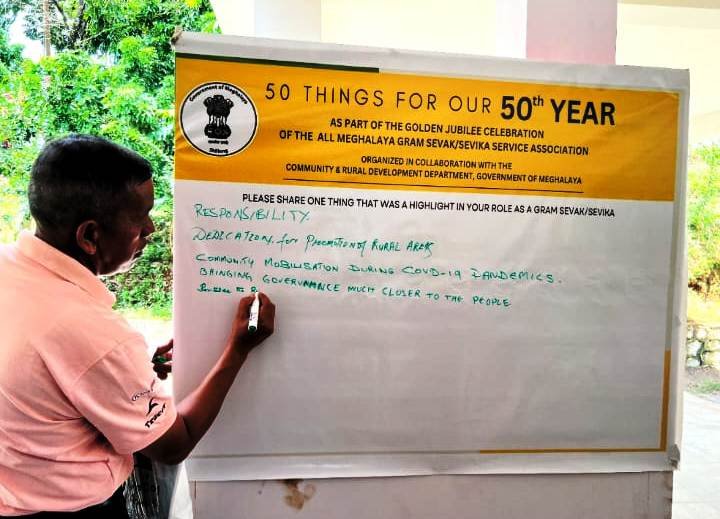 Government of Meghalaya
50 THINGS FOR OUR 50th YEAR
AS PART OF THE GOLDEN JUBILEE CELEBRATION
OF THE ALL MEGHALAYA GRAM SEVAK/SEVIKA SERVICE ASSOCIATION
ORGANIZED IN COLLABORATION WITH THE
COMMUNITY & RURAL DEVELOPMENT DEPARTMENT, GOVERNMENT OF MEGHALAYA
PLEASE SHARE ONE THING THAT WAS A HIGHLIGHT IN YOUR ROLE AS A GRAM SEVAK/SEVIKA
RESPONSIBILITY
DEDICATION for PROMOTION of RURAL AREAS
COMMUNITY MOBILISATION DURING COVID-19 PANDEMICS.
BRINGING GOVERNANCE MUCH CLOSER TO THE PEOPLE